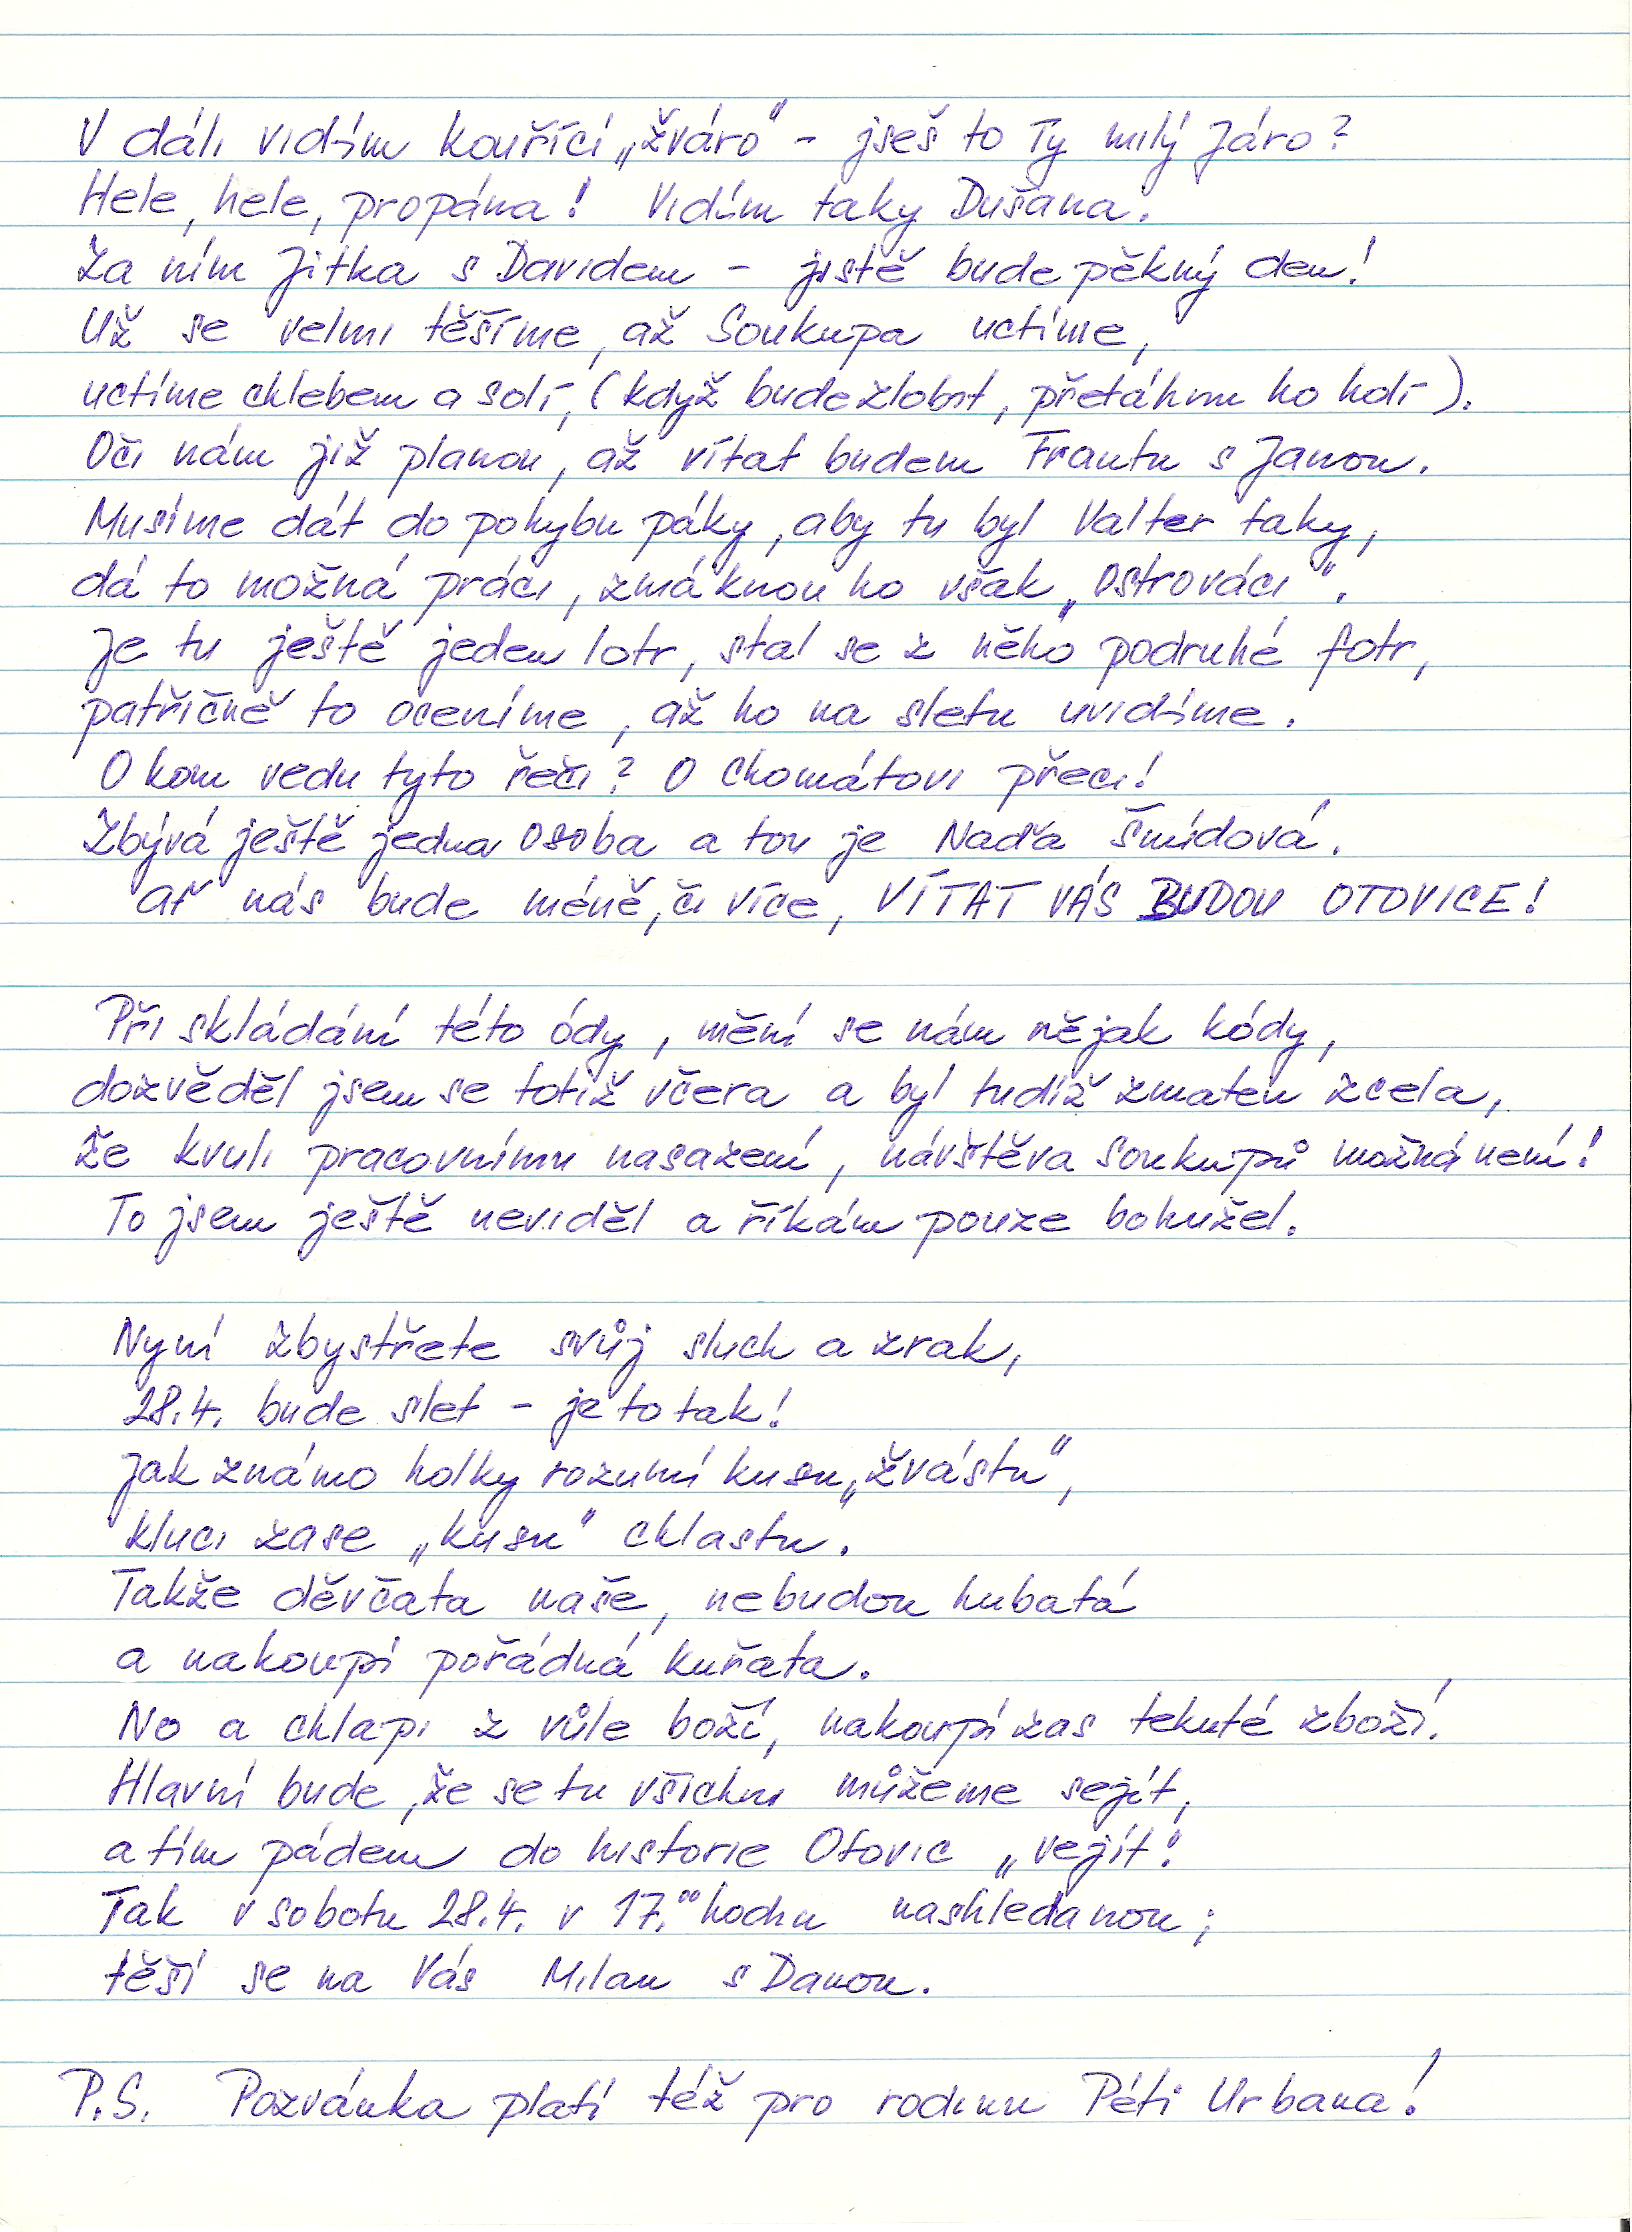 V dáli vidím kouřící „žváro" - jseš to Ty milý Járo?
Hele, hele, propána! Vidím taky Dušana.
Za ním Jitka s Davidem - jistě bude pěkný den!
Už se velmi těšíme, až Soukupa uctíme,
uctíme chlebem a solí, (když bude zlobit, přetáhnu ho holí).
Oči nám již planou, až vítat budem Frantu s Janou.
Musíme dát do pohybu páky, aby tu byl Valter taky,
dá to možná práci, zmáknou ho však „Ostrováci".
Je tu ještě jeden lotr, stal se z něho podruhé fotr,
patřičně to oceníme, až ho na sletu uvidíme.
O kom vedu tyto řeči? O Chomátovi přeci!
Zbývá ještě jedna osoba a tou je Naďa Šmídová.
Ať nás bude méně, či více, VÍTAT VÁS BUDOU OTOVICE!
Při skládání této ódy, mění se nám nějak kódy,
dozvěděl jsem se totiž včera a byl tudíž zmaten zcela,
že kvuli pracovnímu nasazení, návštěva Soukupů možná není!
To jsem ještě neviděl a říkám pouze bohužel.
Nyní zbystřete svůj sluch a zrak,
28.4. bude slet - je to tak!
Jak známo holky rozumí kusu „žvástu",
kluci zase „kusu" chlastu.
Takže děvčata naše, nebudou hubatá
a nakoupí pořádná kuřata.
No a chlapi z vůle boží, nakoupí zas tekuté zboží.
Hlavní bude, že se tu všichni můžeme sejít,
a tím pádem do historie Otovic „vejít".
Tak v sobotu 28.4. v 17.°° hodin nashledanou;
těší se na Vás Milan s Danou.
P.S. Pozvánka platí též pro rodinu Péti Urbana!